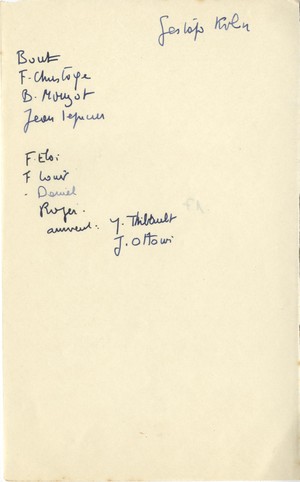 Gestapo Köln
Bout
F. Christophe
B. Mouzot
Jean
F. Eloi
F Louis
- Daniel
Roger.
arrivent: Y. Thibault
J. Ottavi